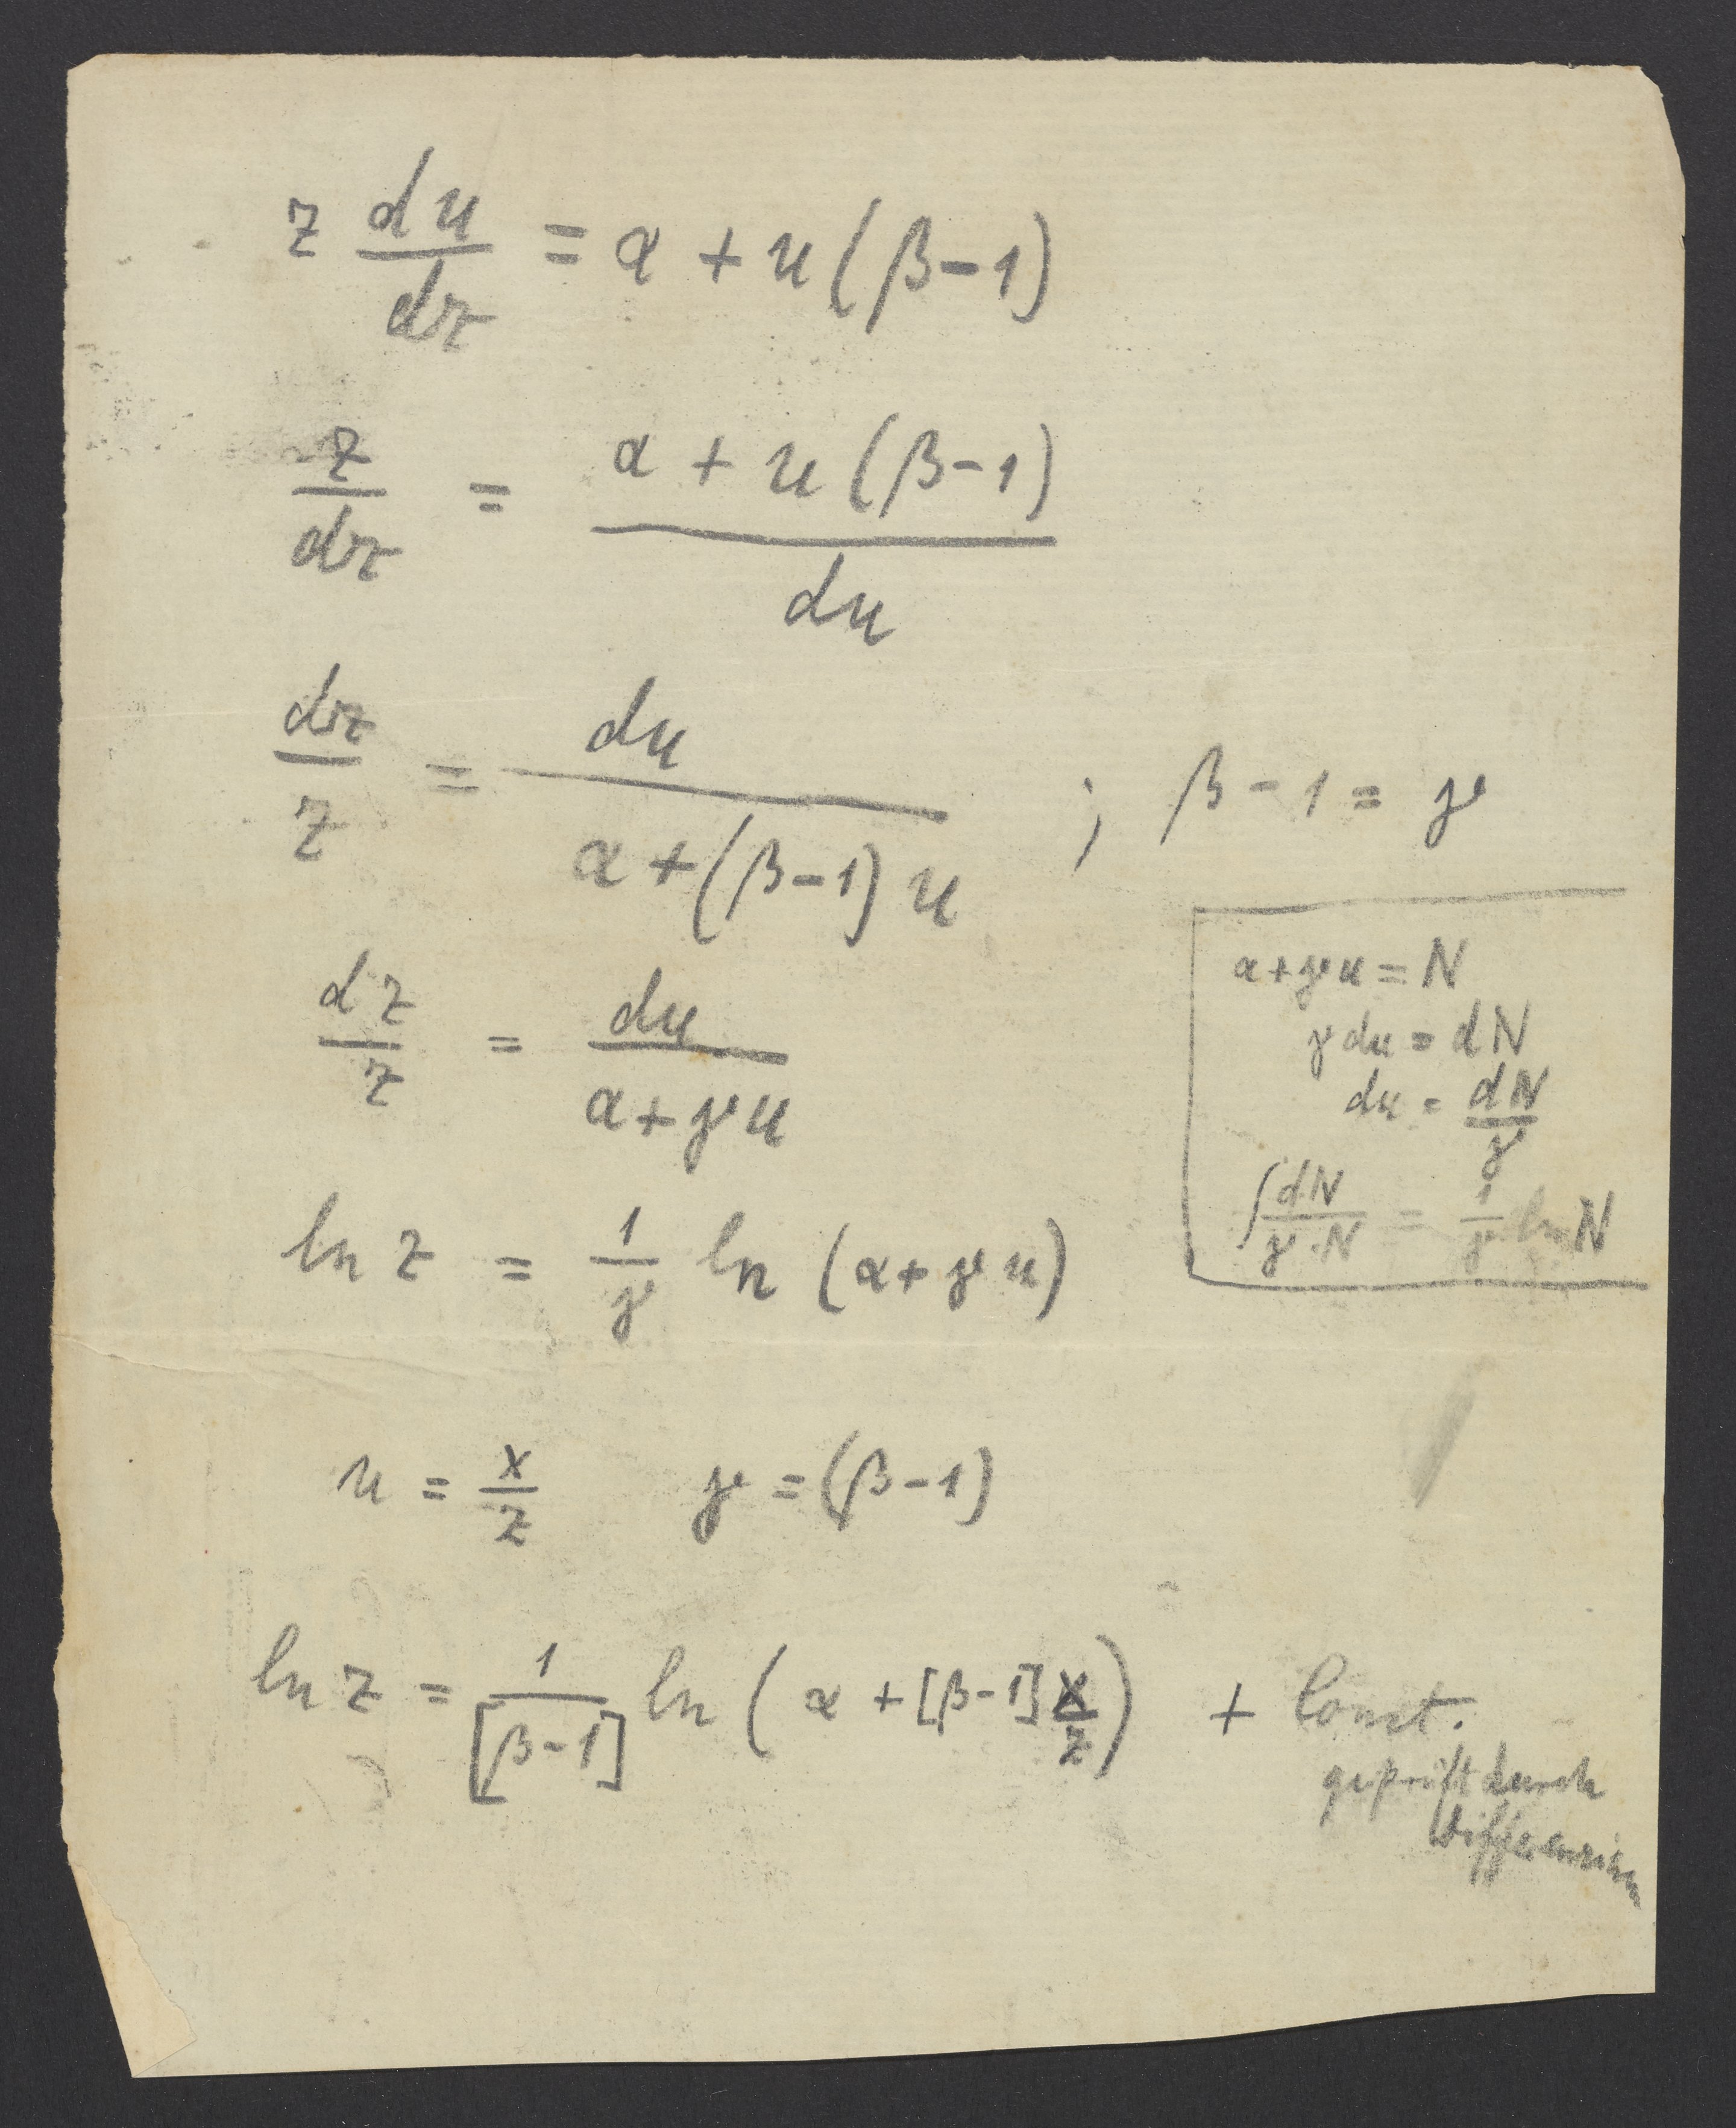 z du/dz = α + u(β-1)
z/dz = α + u(β-1)/du
dz/z = du/α+(β-1)u ; β-1 = γ
dz/z = du/α+γu
α+γu = N
γdu = dN
du = dN/γ
∫dN/γ·N = 1/γ ln N
ln z = 1/γ ln (α+γu)
u = x/z γ = (β-1)
ln z = 1/[β-1] ln (α + [β-1] x/z) + Const.
geprüft durch
differenzieren